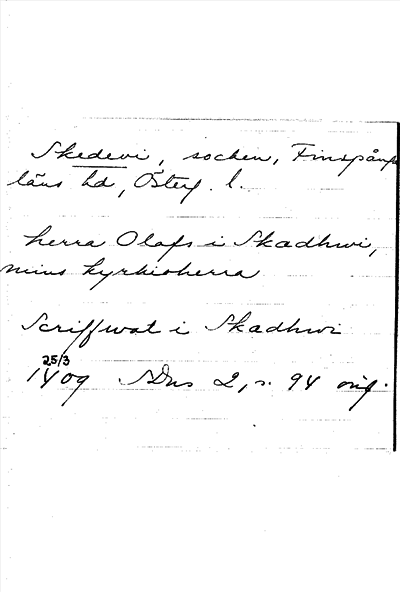 Skedevi, socken, Finspånga
läns hd, Österg. l.
herra Olafs i Skadhwi,
mins kyrkioherra
Scriffwat i Skadhwi
25/3
1409 SDns 2, s. 94 orig.